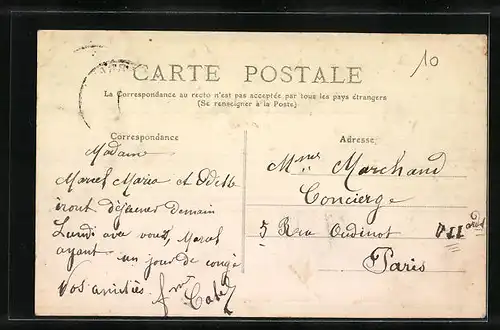 10
CARTE POSTALE
La Correspondance au recto n'est pas acceptée par tous les pays étrangers
(Se renseigner à la Poste)
Correspondance
Adresse
Madame
Marcel Maria et Odette
iront déjeuner demain
Lundi avec vous, Marcel
ayant un jour de congé
Vos amitiés
Mme Marchand
Concierge
5 Rue Oudinot VII
Paris